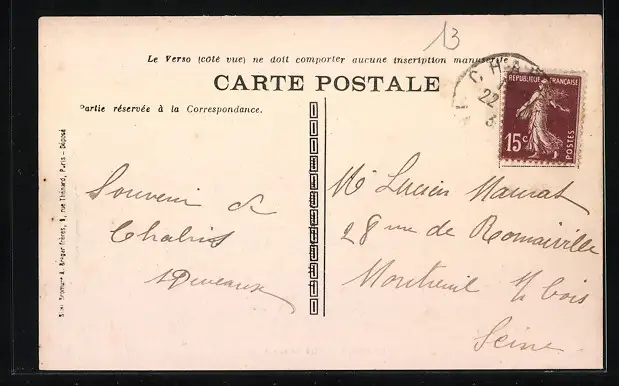 13
Le Verso (côté vue) ne doit comporter aucune inscription manuscrite
CARTE POSTALE
Partie réservée à la Correspondance.
CHA
22
3
RÉPUBLIQUE FRANÇAISE
15c
POSTES
Souvenir de
Chablis
Deveaux
Mr Lucien Maurat
28 rue de Romainville
Montreuil s/ bois
Seine
A. Breger Frères, 9, rue Thénard, Paris - Déposé